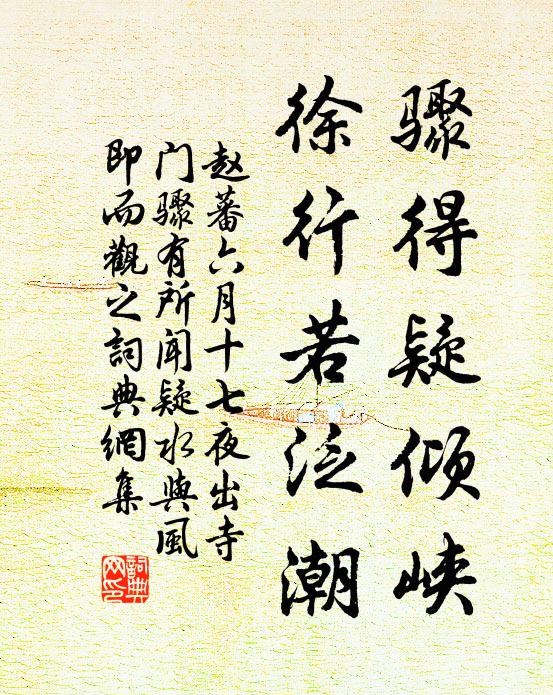 骤得疑倾峡
徐行若泛潮
赵蕃六月十七夜出寺
门骤有所闻疑水与风
即而觀之詞典網集
詞典網印